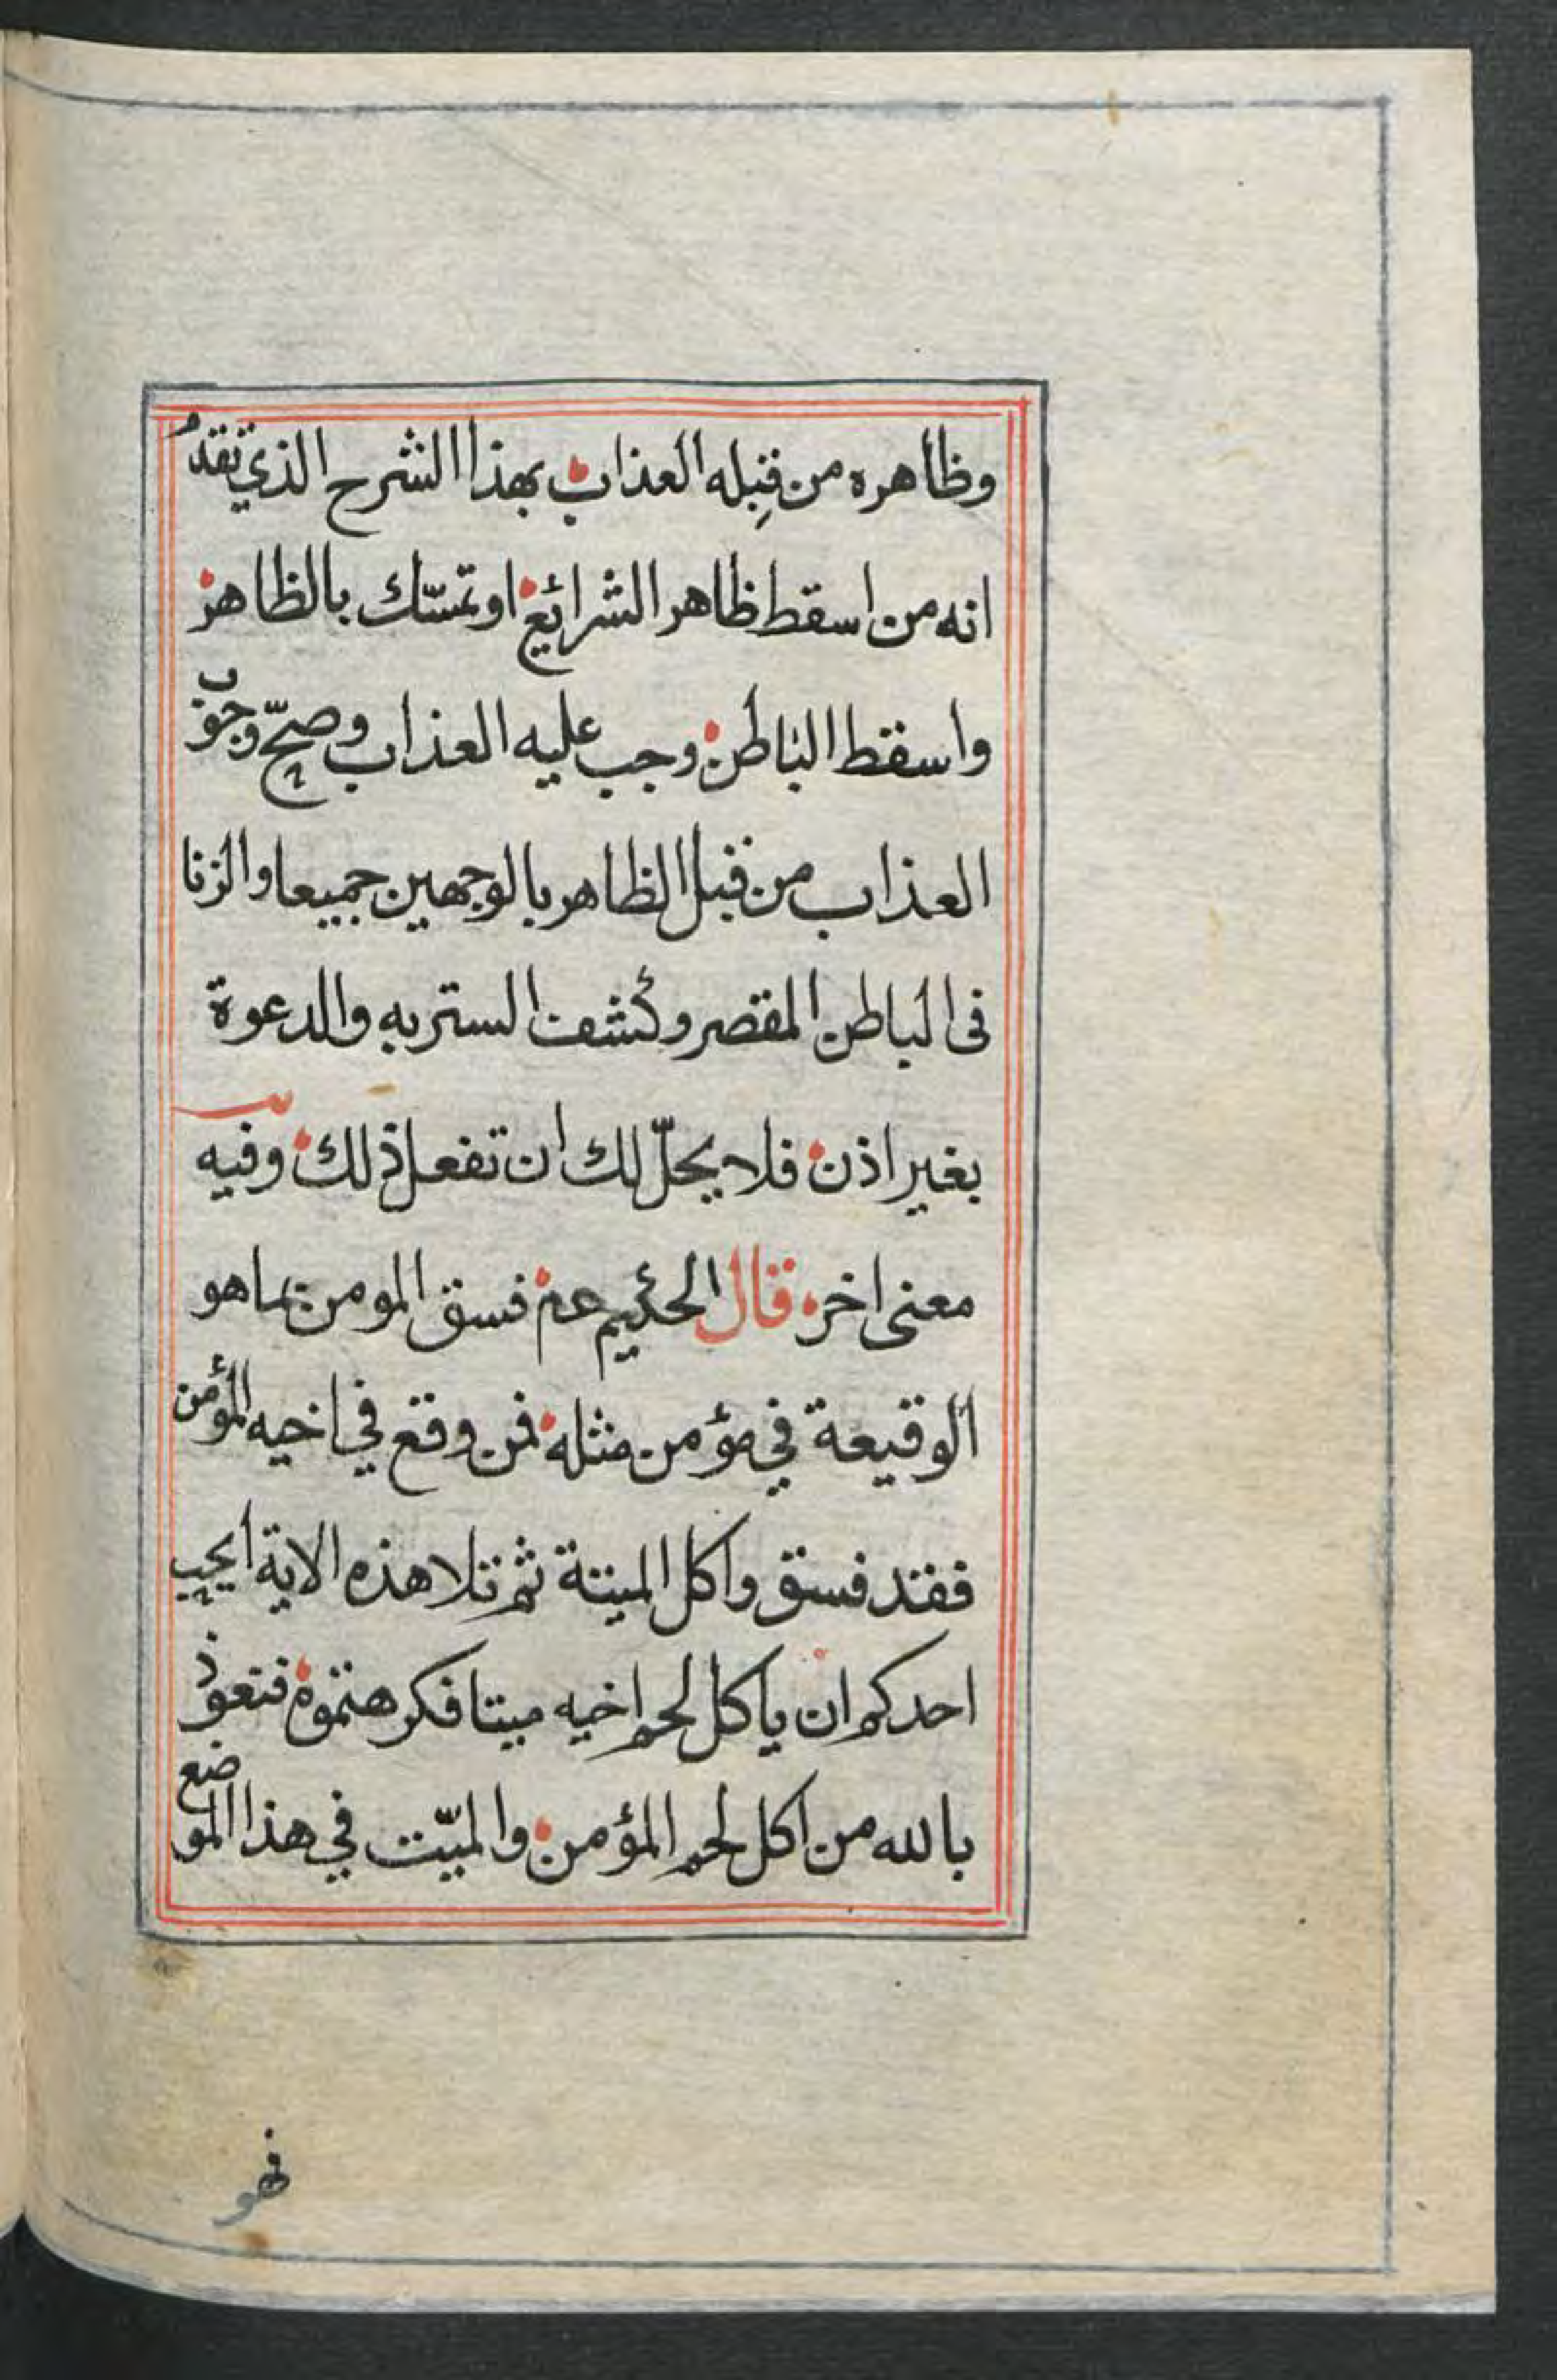 وظاهره من قِبله العذاب بهذا الشرح الذي تقدم
انه من اسقط ظاهر الشرائع او تمسّك بالظاهر
واسقط الباطن وجب عليه العذاب وصحّ وجوب
العذاب من قبل الظاهر بالوجهين جميعا والزنا
فى الباطن المقصر وكشف الستر به والدعوة
بغير اذن فلا يحلّ لك ان تفعل ذلك وفيه
معنى اخر قال الحكيم عم فسق المومن بما هو
الوقيعة في مؤمن مثله فمن وقع في اخيه المؤمن
فقد فسق واكل الميتة ثم تلا هذه الاية أيحب
احدكم ان ياكل لحم اخيه ميتا فكرهتموه فتعوذ
بالله من اكل لحم المؤمن والميّت في هذا الموضع
فهو